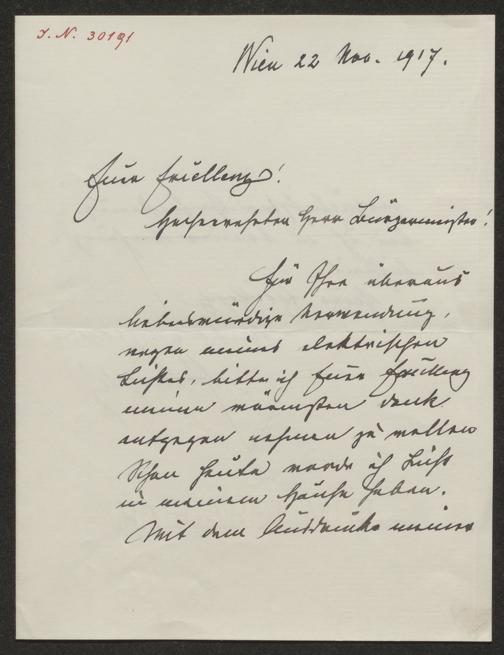 I. N. 30191
Wien 22 Nov. 1917.
Euer Exzellenz!
Hochverehrter Herr Bürgermeister!
Für Ihre überaus
liebenswürdige Verwendung,
wegen meines elektrischen
Lichtes, bitte ich Euer Exzellenz
meinen wärmsten Dank
entgegen nehmen zu wollen
Schon heute werde ich Licht
in meinem Hause haben.
Mit dem Ausdrucke meiner